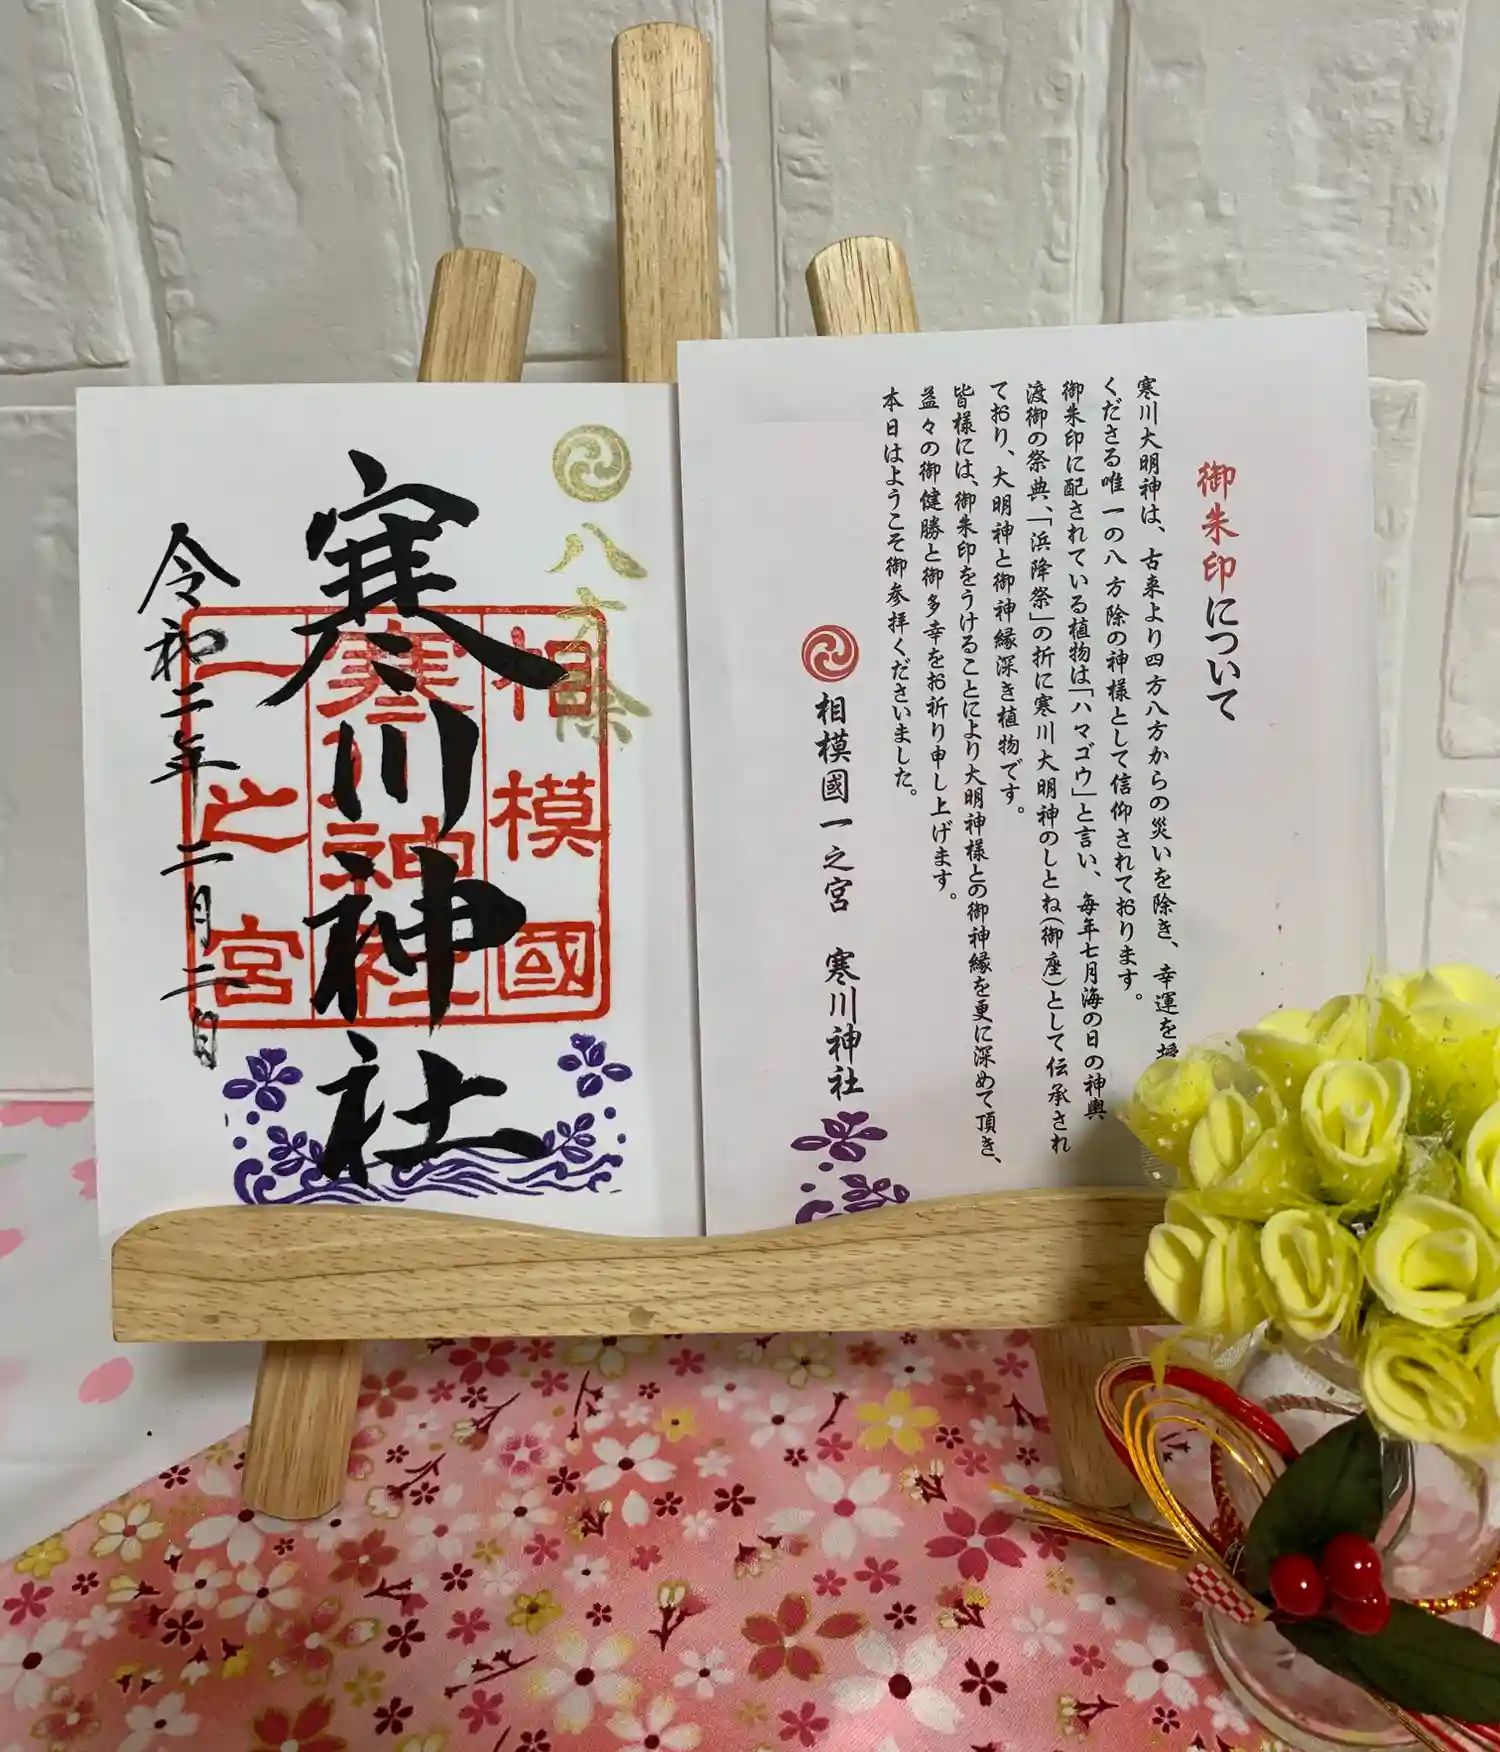 八方除
寒川神社
相模國
寒川神社
一之宮
令和二年二月二日
御朱印について
寒川大明神は、古来より四方八方からの災いを除き、幸運を授
くださる唯一の八方除の神様として信仰されております。
御朱印に配されている植物は「ハマゴウ」と言い、毎年七月海の日の神輿
渡御の祭典、「浜降祭」の折に寒川大明神のしとね(御座)として伝承され
ており、大明神と御神縁深き植物です。
皆様には、御朱印をうけることにより大明神様との御神縁を更に深めて頂き、
益々の御健勝と御多幸をお祈り申し上げます。
本日はようこそ御参拝くださいました。
相模國一之宮 寒川神社